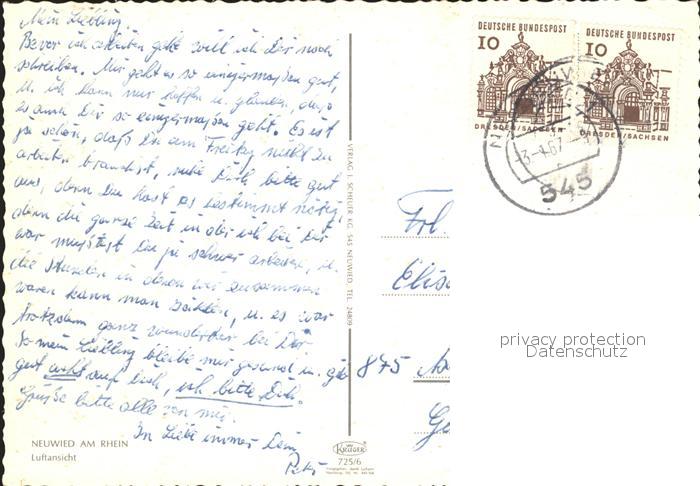 Mein Liebling.
Bevor ich arbeiten gehe will ich Dir noch
schreiben. Mir geht es so einigermaßen gut,
u. ich kann nur hoffen u. glauben, daß
es auch Dir so einigermaßen geht. Es ist
ja schön, daß Du am Freitag nicht zu
arbeiten brauchst, ruhe Dich bitte gut
aus, denn Du hast es bestimmt nötig,
denn die ganze Zeit in der ich bei Dir
war mußtest Du ja schwer arbeiten, u.
die Stunden in denen wir zusammen
waren kann man zählen, u. es war
trotzdem ganz wunderbar bei Dir.
So mein Liebling bleibe mir gesund u. gib
gut acht auf Dich, ich bitte Dich.
Grüße bitte alle von mir.
In Liebe immer Dein
Peter
NEUWIED AM RHEIN
Luftansicht
KRÜGER
725/6
VERLAG J. SCHEUER KG. 545 NEUWIED, TEL. 24809
DEUTSCHE BUNDESPOST
10
DRESDEN/SACHSEN
DEUTSCHE BUNDESPOST
10
DRESDEN/SACHSEN
545
Frl.
Elise
875
privacy protection
Datenschutz